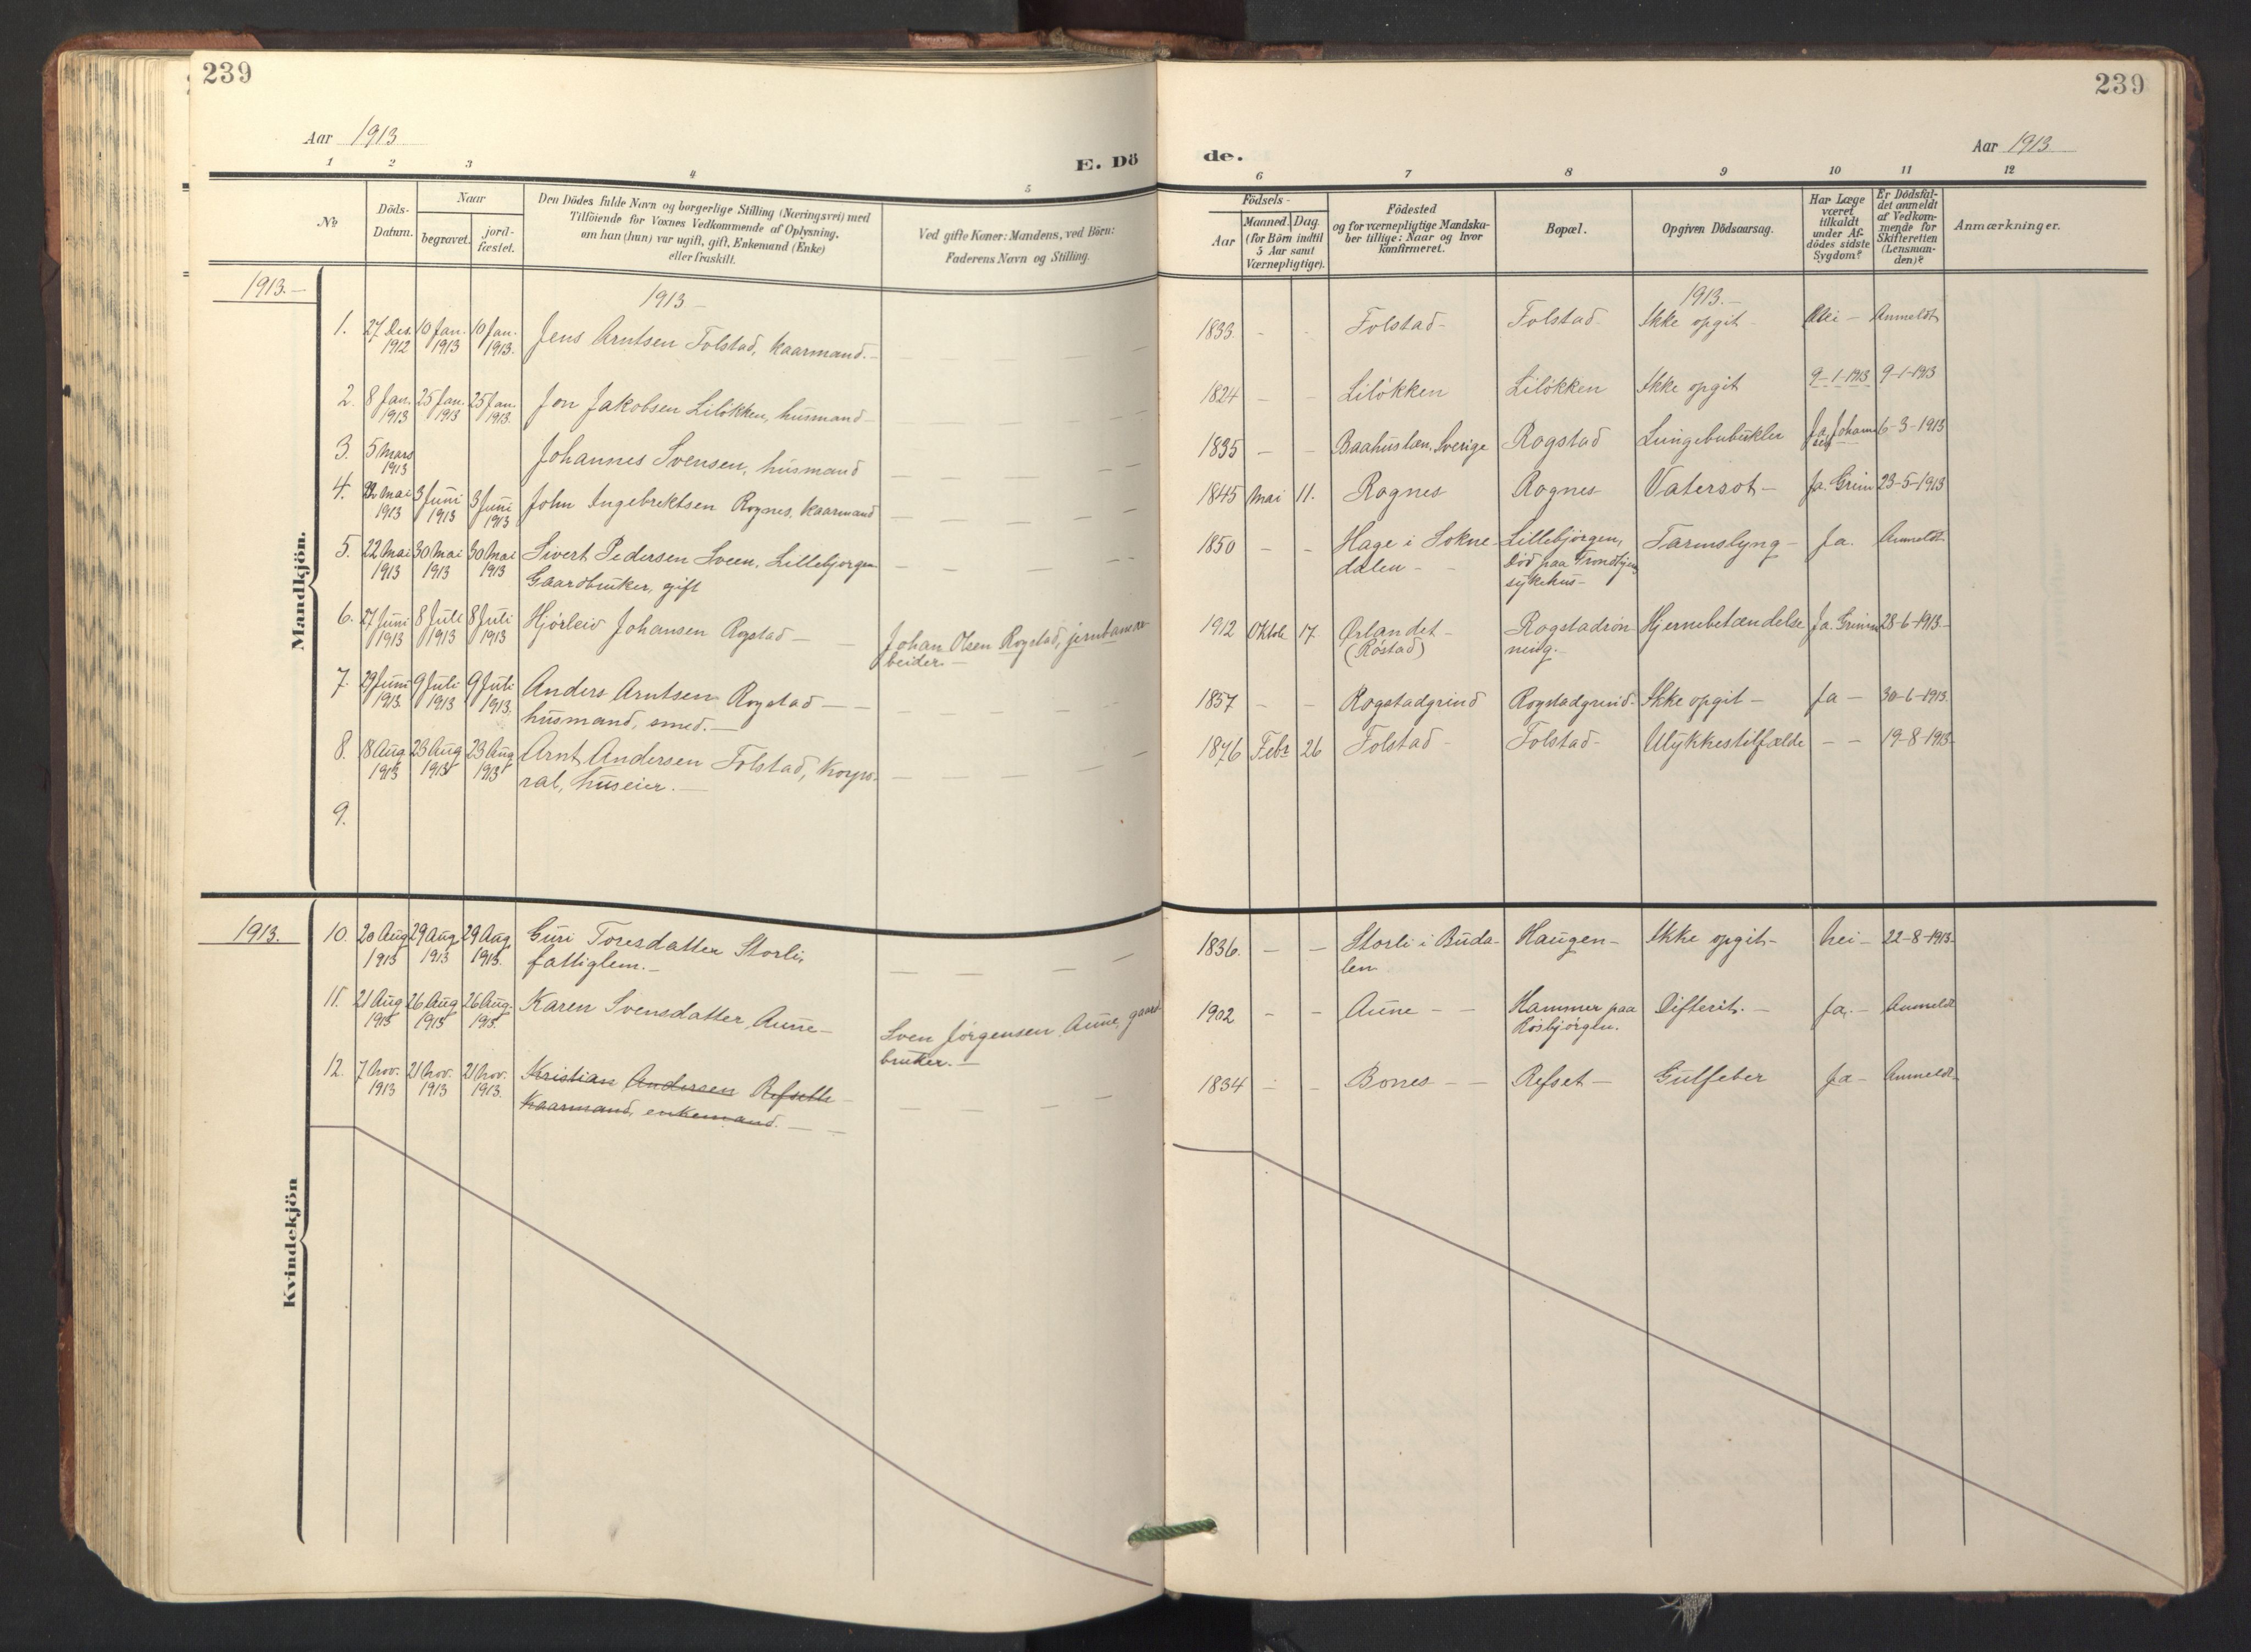 239
239
Aar 1913
Aar 1913
E. Dö
de.
1 2 3 4 5
6 7 8 9 10 11 12
No
Döds-
Datum.
Naar
begravet.
jord-
fæstet.
Den Dödes fulde Navn og borgerlige Stilling (Næringsvei) med
Tilföiende for Voxnes Vedkommende af Oplysning,
om han (hun) var ugift, gift, Enkemand (Enke)
eller fraskilt.
Ved gifte Koner: Mandens, ved Börn:
Faderens Navn og Stilling.
Födsels-
Aar
Maaned.
Dag.
(for Börn indtil
5 Aar samt
Værnepligtige).
Födested
og for værnepligtige Mandska-
ber tillige: Naar og hvor
konfirmeret.
Bopæl.
Opgiven Dödsaarsag.
Har Læge
været
tilkaldt
under Af-
dödes sidste
Sygdom?
Er Dödsfal-
det anmeldt
af Vedkom-
mende for
Skifteretten
(Lensman-
den)?
Anmærkninger.
Mandkjön.
1913.—
1913 —
1913.—
1. 27 Des. 10 Jan. 10 Jan. Jens Arntsen Folstad, kaarmand.—
1912 1913 1913.
1833. - - Folstad- Folstad- Ikke opgit- Nei — Anmeldt
2. 8 Jan. 25 Jan. 25 Jan. Jon Jakobsen Liløkken, husmand—
1913 1913 1913.
1824 — - Liløkken Liløkken Ikke opgit 9-1-1913 9-1-1913
3. 5 Mars Johannes Svensen, husmand
1913
1835 — - Baahuslæn, Sverige Rogstad Lungebetukler Ja, Johan 6-3-1913
4. 22 mai 3 Juni 3 Juni John Ingebrektsen Rognes, kaarmand
1913 1913 1913
1845 Mai 11. Rognes Rognes Vatersot— Ja. Grim 23-5-1913
5. 22 Mai 30 Mai 30 Mai Sivert Pedersen Sveen, Lillebjorgen
1913 1913 1913 Gaardbruker, gift
1850 - - Hage i Sokne- Lillebjørgen, Tarmslyng — Ja. Anmeldt
dalen — død paa Trondhjems
sykehus—
6. 27 Juni 8 Juli 8 Juli Hjørleiv Johansen Rogstad — Johan Olsen Rogstad, jernbanear-
1913 1913 1913 beider.—
1912 Oktob 17. Ørlandet- Rogstadrøn- Hjernebetændelse Ja. Grimm 28-6-1913.
(Røstad) ning.
7. 29 Juni 9 Juli 9 Juli Anders Arntsen Rogstad — —
1913. 1913 1913. husmand, smed.—
1857 - - Rogstadgrind Rogstadgrind- Ikke opgit — Ja — 30-6-1913.
8. 18 Aug 23 Aug 23 Aug Arnt Andersen Folstad, Korpo-
1913 1913 1913 ral, huseier.—
1876 Febr 26 Folstad- Folstad- Ulykkestilfælde — — 19-8-1913-
9.
Kvindekjön
1913.
10. 20 Aug 29 Aug 29 Aug. Guri Toresdatter Storli,
1913 1913 1913. fattiglem.—
1836. — — Storli i Buda- Haugen— Ikke opgit- Nei— 22-8-1913-
len.
11. 21 Aug 26 Aug 26 Aug. Karen Svensdatter Aune— Sven Jørgensen Aune, gaard-
1913 1913 1913. bruker.—
1902 - - Aune - - Hammer paa Difterit.— Ja.— Anmeldt
Røsbjørgen.
12. 7 Nov. 21 Nov. 21 Nov. Kristian Andersen Refseth —
1913 1913 1913. Kaarmand, enkemand. — —
1834 - - Bones - — Refset — Gulfeber Ja — Anmeldt-